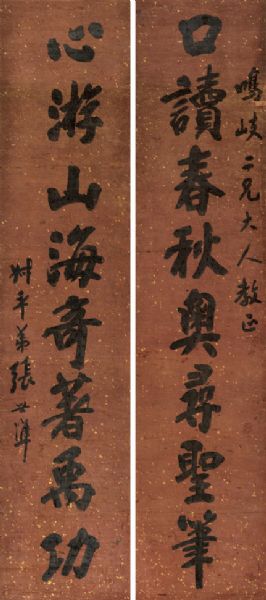 鳴岐二兄大人教正
口讀春秋奧尋聖筆
心游山海奇著禹功
叔平弟張世準